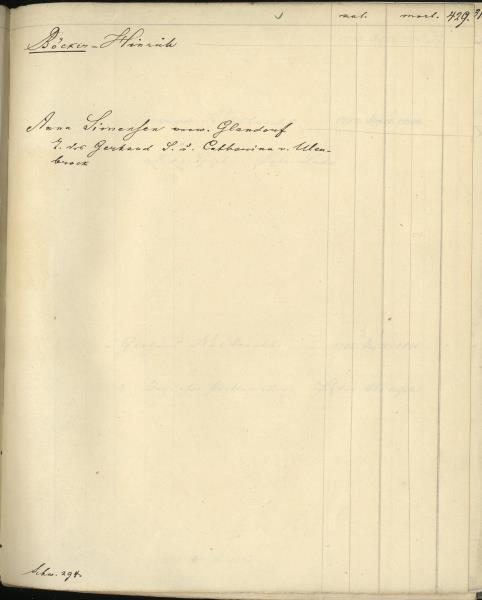 nat. mort. 429.
Böcker - Hinrich
Anna Simensen verw. Glandorf
T. des Gerhard S. u. Catharina v. Ulen-
brock
Schw. 294.